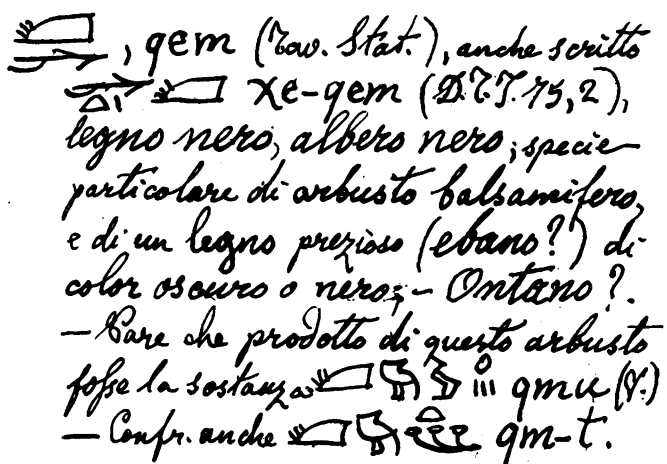 , qem (Tav. Stat.), anche scritto
χe-qem (D.T.I. 75, 2),
legno nero, albero nero; specie
particolare di arbusto balsamifero,
e di un legno prezioso (ebano?) di
color oscuro o nero; – Ontano?.
— Pare che prodotto di questo arbusto
fosse la sostanza qmu (V.)
— Confr. anche qm-t.